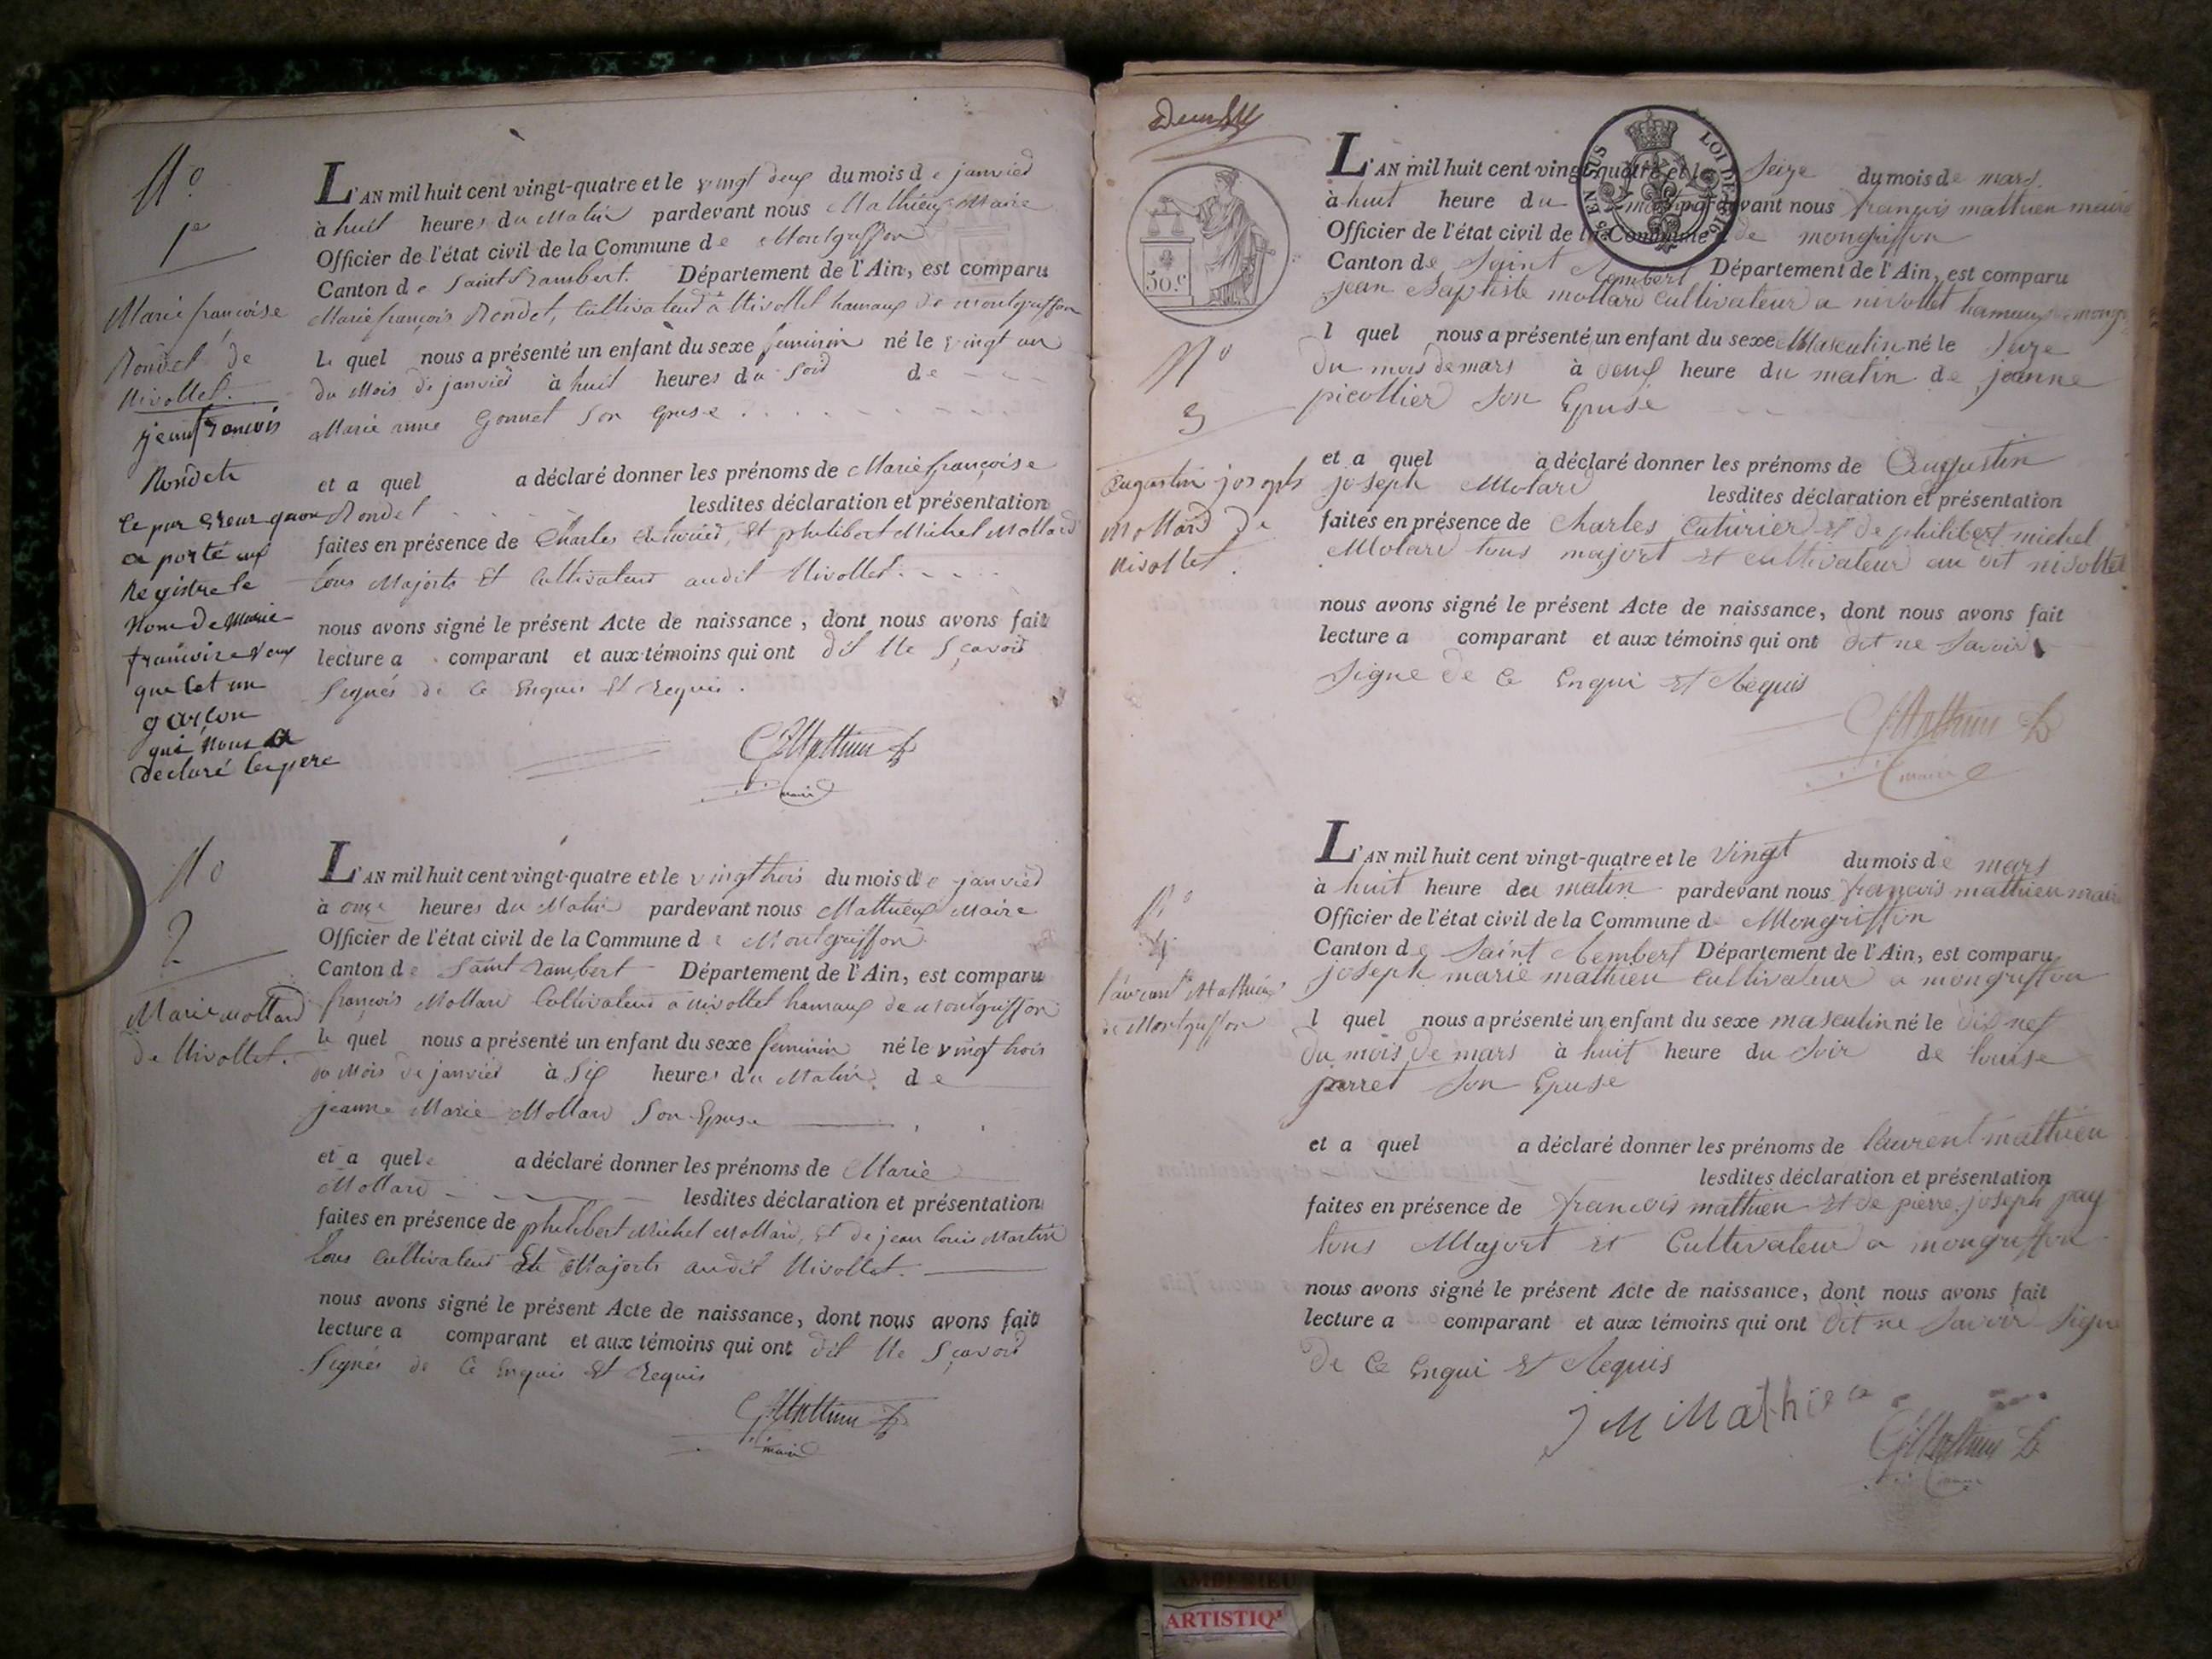 N.o
1.e
Marie françoise
Rondet de
Nivollet.
jean françois
Rondet
Ce par Ereur qu'on
a porté aux
Registre le
Nom de Marie
françoise
que Cet un
garçon
qui nous a
declaré le pere
L'AN mil huit cent vingt-quatre et le vingt deux du mois de janvier
à huit heures du Matin pardevant nous Mathieux Maire
Officier de l'état civil de la Commune de Montgriffon
Canton de Saint Rambert. Département de l'Ain, est comparu
Marie françois Rondet, Cultivateur à Nivollet hamaux de Montgriffon
Le quel nous a présenté un enfant du sexe feminin né le vingt un
du Mois de janvier à huit heures du Soir de
Marie anne Gonnet Son Epuse
et a quel a déclaré donner les prénoms de Marie françoise
Rondet lesdites déclaration et présentation
faites en présence de Charles Cuturier, Et philibert Michel Mollard
tous Majorts Et Cultivateur audit Nivollet.
nous avons signé le présent Acte de naissance, dont nous avons fait
lecture a comparant et aux témoins qui ont dit Ne Sçavoir
Signés de Ce Enquis Et Requis.
Mathieu
maire
N.o
2
Marie Mollard
de Nivollet.
L'AN mil huit cent vingt-quatre et le vingt trois du mois de janvier
à onze heures du Matin pardevant nous Mathieux Maire
Officier de l'état civil de la Commune de Montgriffon
Canton de Saint Rambert Département de l'Ain, est comparu
françois Mollard Cultivateur à Nivollet hamaux de Montgriffon
le quel nous a présenté un enfant du sexe feminin né le vingt trois
du Mois de janvier à Six heures du Matin de
jeanne Marie Mollard Son Epuse
et a quele a déclaré donner les prénoms de Marie
Mollard lesdites déclaration et présentation
faites en présence de philibert Michel Mollard, Et de jean louis Martin
tous Cultivateur Et Majorts audit Nivollet.
nous avons signé le présent Acte de naissance, dont nous avons fait
lecture a comparant et aux témoins qui ont dit Ne Sçavoir
Signés de Ce Enquis Et Requis
Mathieu
maire
50.c
EN SUS
LOI DE 1816
N.o
3
Augustin joseph
Mollard de
Nivollet.
L'AN mil huit cent vingt-quatre et le Seize du mois de mars
à huit heure du pardevant nous françois mathieu maire
Officier de l'état civil de la Commune de mongriffon
Canton de Saint Rembert Département de l'Ain, est comparu
jean Baptiste mollard cultivateur a nivollet hameux
l quel nous a présenté un enfant du sexe Masculin né le Seize
du mois de mars à deux heure du matin de jeanne
picollier Son Epuse
et a quel a déclaré donner les prénoms de Augustin
joseph Molard lesdites déclaration et présentation
faites en présence de Charles Cuturier Et de philibert michel
Molard tous majort Et cultivateur au dit nivollet
nous avons signé le présent Acte de naissance, dont nous avons fait
lecture a comparant et aux témoins qui ont dit ne Savoir
Signe de Ce Enqui Et Requis
Mathieu
maire
N.o
4
laurant Mathieux
de Montgriffon
L'AN mil huit cent vingt-quatre et le Vingt du mois de mars
à huit heure du matin pardevant nous françois mathieu maire
Officier de l'état civil de la Commune de Mongriffon
Canton de Saint Rembert Département de l'Ain, est comparu
joseph marie mathieu Cultivateur a mongriffon
l quel nous a présenté un enfant du sexe masculin né le dix nef
du mois de mars à huit heure du Soir de louise
perret Son Epuse
et a quel a déclaré donner les prénoms de laurent mathieu
lesdites déclaration et présentation
faites en présence de francois mathieu Et de pierre joseph
tous Majort Et Cultivateur a mongriffon
nous avons signé le présent Acte de naissance, dont nous avons fait
lecture a comparant et aux témoins qui ont dit ne Savoir Signe
de Ce Enqui Et Requis
J M Mathieu
Mathieu
ARTISTIQ